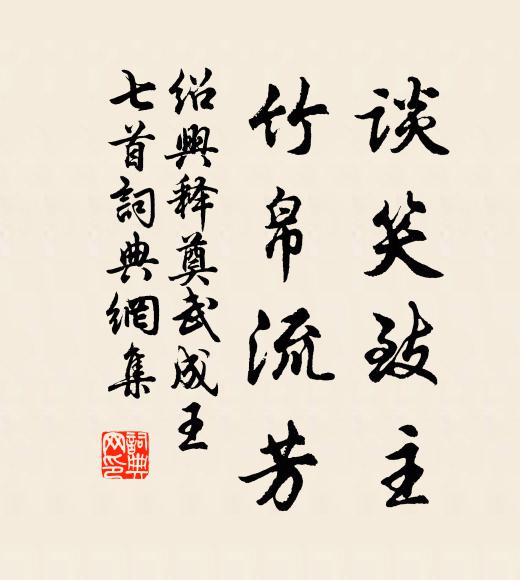 谈笑致主
竹帛流芳
绍興释奠武成王
七首詞典網集
詞典网印